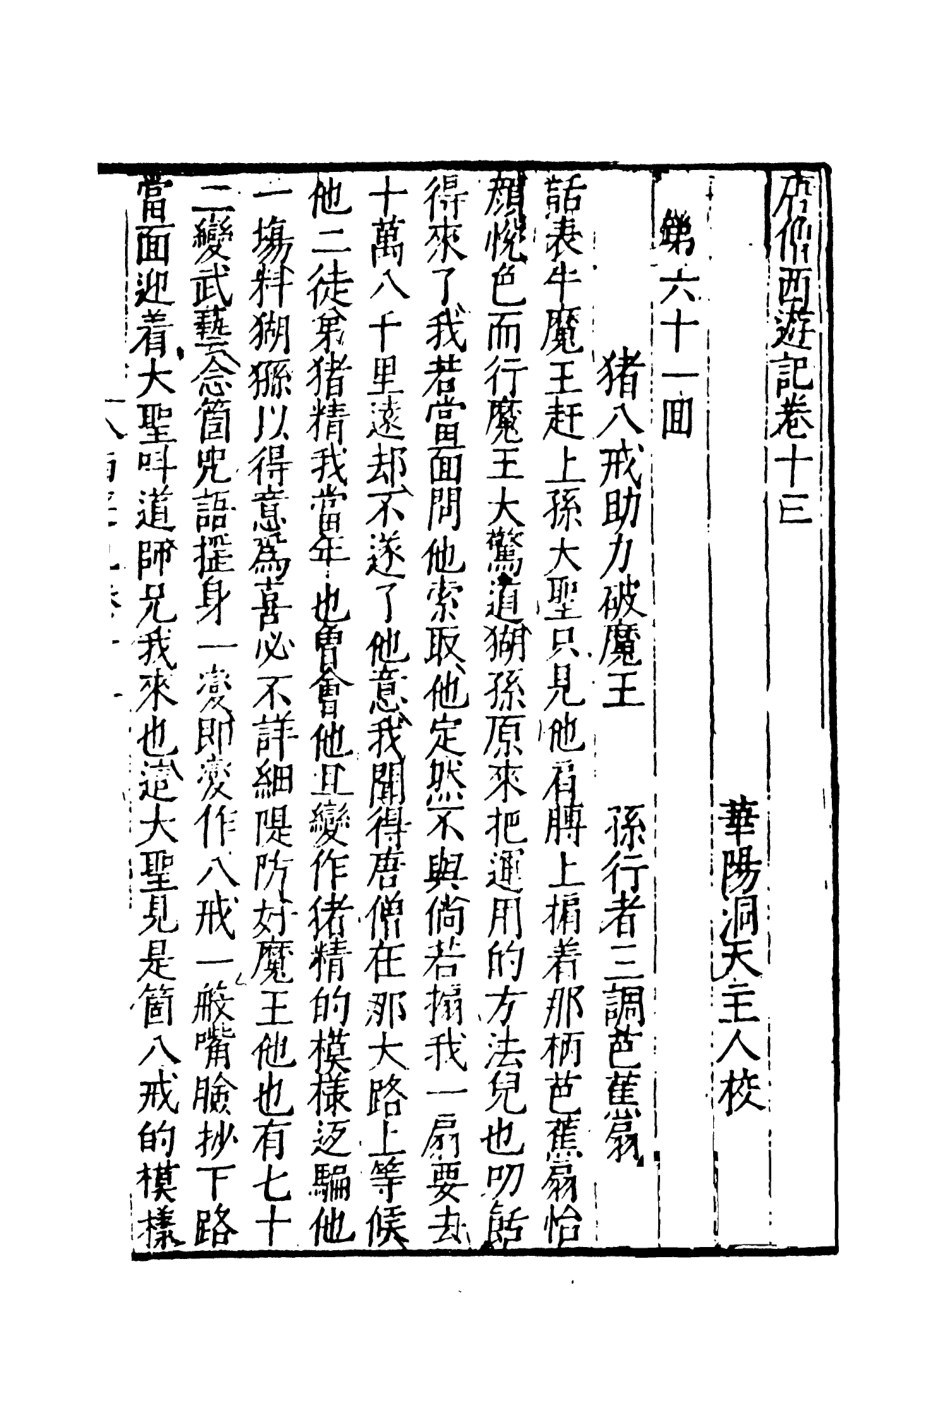 唐僧西遊記卷十三
華陽洞天主人校
第六十一囬
猪八戒助力破魔王　孫行者三調芭蕉扇
話表牛魔王赶上孫大聖只見他肩膊上掮着那柄芭蕉扇怡
顔悅色而行魔王大驚道猢孫原來把運用的方法兒也叨餂
得來了我若當面問他索取他定然不與倘若搧我一扇要去
十萬八千里遠却不遂了他意我聞得唐僧在那大路上等候
他二徒弟猪精我當年也曾會他且變作猪精的模樣返騙他
一塲料猢猻以得意爲喜必不詳細隄防好魔王他也有七十
二變武藝念箇兕語揺身一变即变作八戒一般嘴臉抄下路
當面迎着大聖呌道師兄我來也這大聖見是箇八戒的模樣